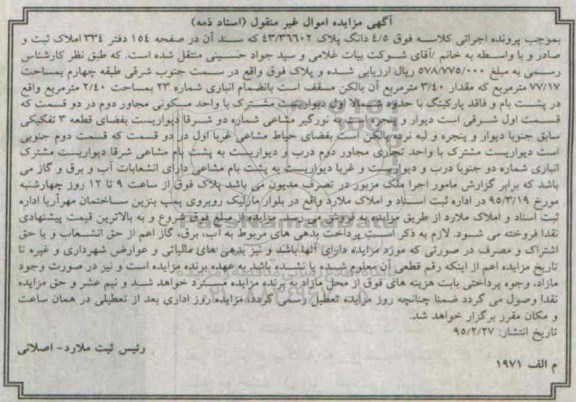 آگهی مزایده اموال غیر منقول (اسناد ذمه)
بموجب پرونده اجرائی کلاسه فوق ۴/۵ دانگ پلاک ۴۳/۳۶۶۰۲ که سند آن در صفحه ۱۵۴ دفتر ۳۳۴ املاک ثبت و
صادر و با واسطه به خانم /آقای شوکت بیات غلامی و سید جواد حسینی منتقل شده است، که طبق نظر کارشناس
رسمی به مبلغ ۵۷۸/۷۷۵/۰۰۰ ریال ارزیابی شده و پلاک فوق واقع در سمت جنوب شرقی طبقه چهارم بمساحت
۷۷/۱۷ مترمربع که مقدار ۳/۴۰ مترمربع آن بالکن مسقف است بانضمام انباری شماره ۲۳ بمساحت ۲/۴۰ مترمربع واقع
در پشت بام و فاقد پارکینگ با حدود شمالا اول دیواریست مشترک با واحد مسکونی مجاور دوم در دو قسمت که
قسمت اول شرقی است دیوار و پنجره ایست به نورگیر مشاعی شماره دو شرقا دیواریست بفضای قطعه ۳ تفکیکی
سابق جنوبا دیوار و پنجره و لبه نرده بالکن است بفضای حیاط مشاعی غربا اول در دو قسمت که قسمت دوم جنوبی
است دیواریست مشترک با واحد تجاری مجاور دوم درب و دیواریست به پشت بام مشاعی شرقا دیواریست مشترک
انباری شماره دو جنوبا درب و دیواریست و غربا دیواریست به پشت بام مشاعی دارای انشعابات آب و برق و گاز می
باشد که برابر گزارش مامور اجرا ملک مزبور در تصرف مدیون می باشد پلاک فوق از ساعت ۹ تا ۱۲ روز چهارشنبه
مورخ ۹۵/۳/۱۹ در اداره ثبت اسناد و املاک ملارد واقع در بلوار مارلیک روبروی پمپ بنزین ساختمان مهرآریا اداره
ثبت اسناد و املاک ملارد از طریق مزایده به فروش می رسد. مزایده از مبلغ فوق شروع و به بالاترین قیمت پیشنهادی
نقدا فروخته می شود. لازم به ذکر است پرداخت بدهی های مربوط به آب، برق، گاز اعم از حق انشعاب و یا حق
اشتراک و مصرف در صورتی که مورد مزایده دارای آنها باشد و نیز بدهی های مالیاتی و عوارض شهرداری و غیره تا
تاریخ مزایده اعم از اینکه رقم قطعی آن معلوم شده یا نشده باشد به عهده برنده مزایده است و نیز در صورت وجود
مازاد، وجوه پرداختی بابت هزینه های فوق از محل مازاد به برنده مزایده مسترد خواهد شد و نیم عشر و حق مزایده
نقدا وصول می گردد ضمنا چنانچه روز مزایده تعطیل رسمی گردد، مزایده روز اداری بعد از تعطیلی در همان ساعت
و مکان مقرر برگزار خواهد شد.
تاریخ انتشار: ۹۵/۲/۲۷
رئیس ثبت ملارد- اصلانی
م الف ۱۹۷۱